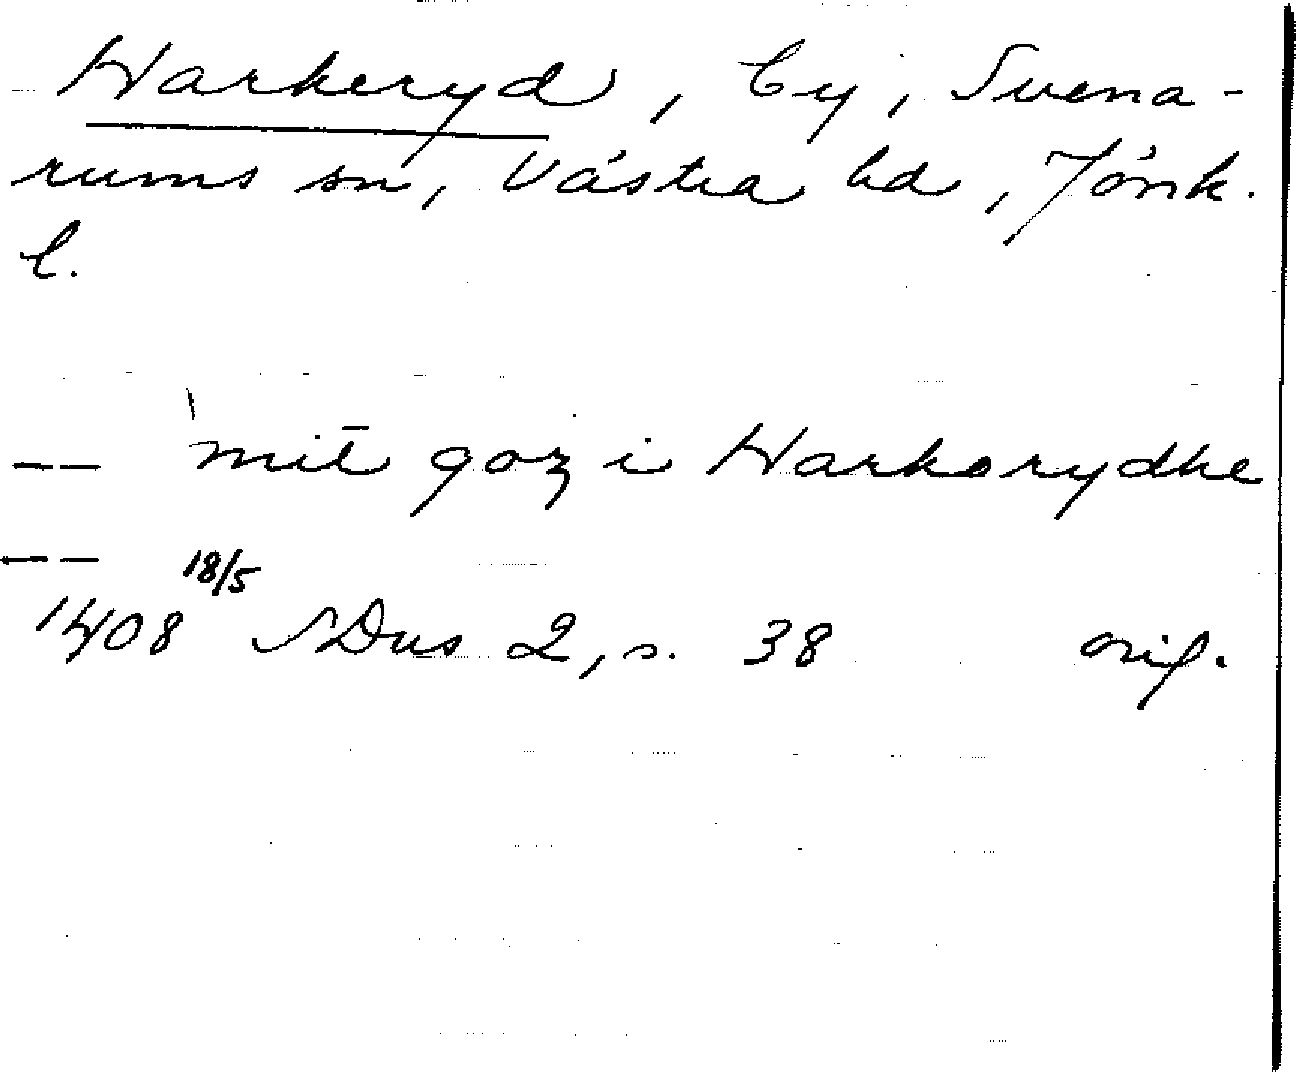 Harkeryd, by, Svena-
rums sn, Västra hd, Jönk.
l.
-- mit̄ goz i Harkorydhe
--
1408 18/5 SDns 2, s. 38 orig.